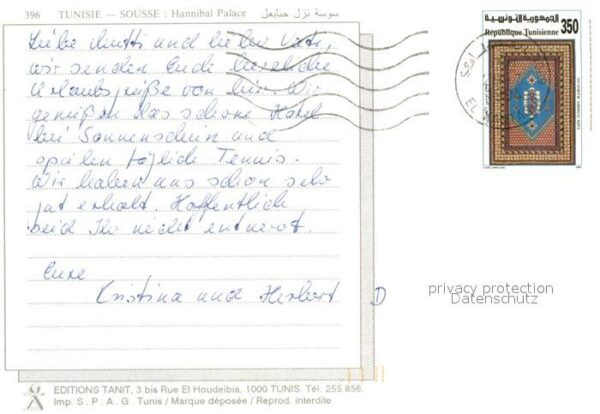 396 TUNISIE — SOUSSE : Hannibal Palace سوسة نزل حنابعل
Liebe Mutti und lieber Vati,
wir senden Euch herzliche
Urlaubsgrüße von hier. Wir
genießen das schöne Hotel
bei Sonnenschein und
spielen täglich Tennis.
Wir haben uns schon sehr
gut erholt. Hoffentlich
seid Ihr nicht entnervt.
Eure
Kristina und Herbert
D
الجمهورية التونسية
350
République Tunisienne
privacy protection
Datenschutz
EDITIONS TANIT, 3 bis Rue El Houdeibia, 1000 TUNIS. Tél. 255.856.
Imp. S. P. A. G. Tunis / Marque déposée / Reprod. interdite